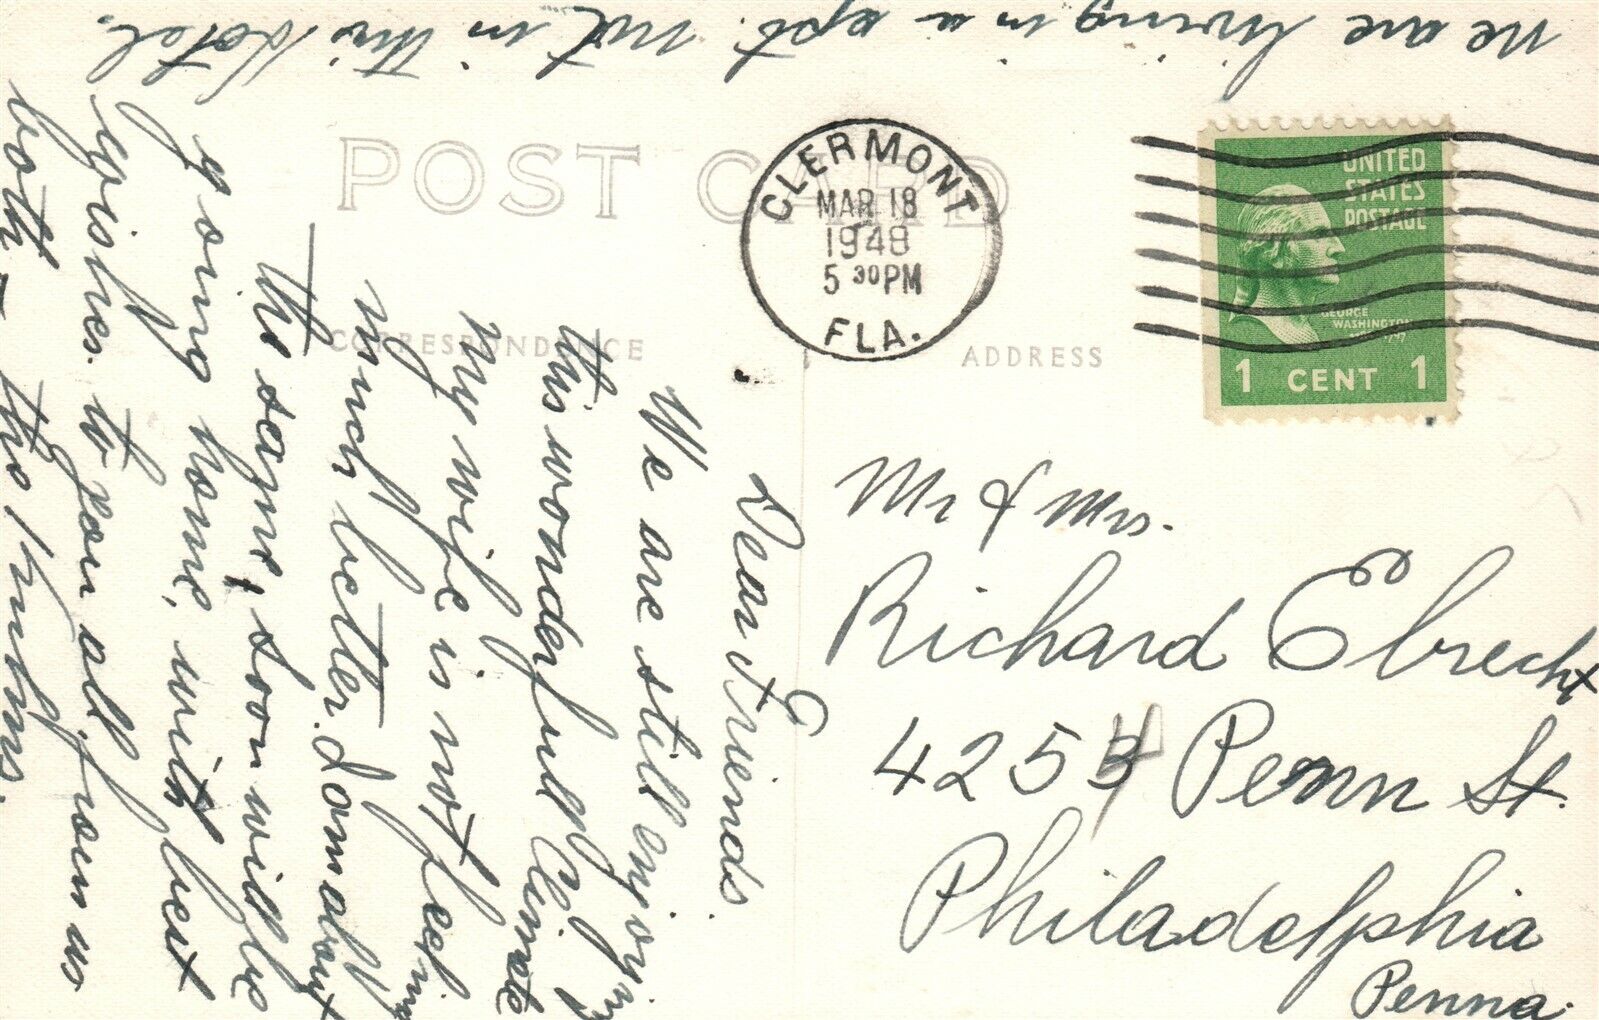 we are living in a apt. not in this Hotel.
POST CARD
CLERMONT
MAR 18
1948
5 30 PM
FLA.
UNITED
STATES
POSTAGE
GEORGE
WASHINGTON
1 CENT 1
CORRESPONDENCE
ADDRESS
Dear Friends
We are still enjoying
this wonderful Climate
My wife is not feeling
much better. I om about
the same, soon will be
going home, with best
wishes to you all from us
both - the
Mr & Mrs.
Richard Ebrecht
4254 Penn St.
Philadelphia
Penna.